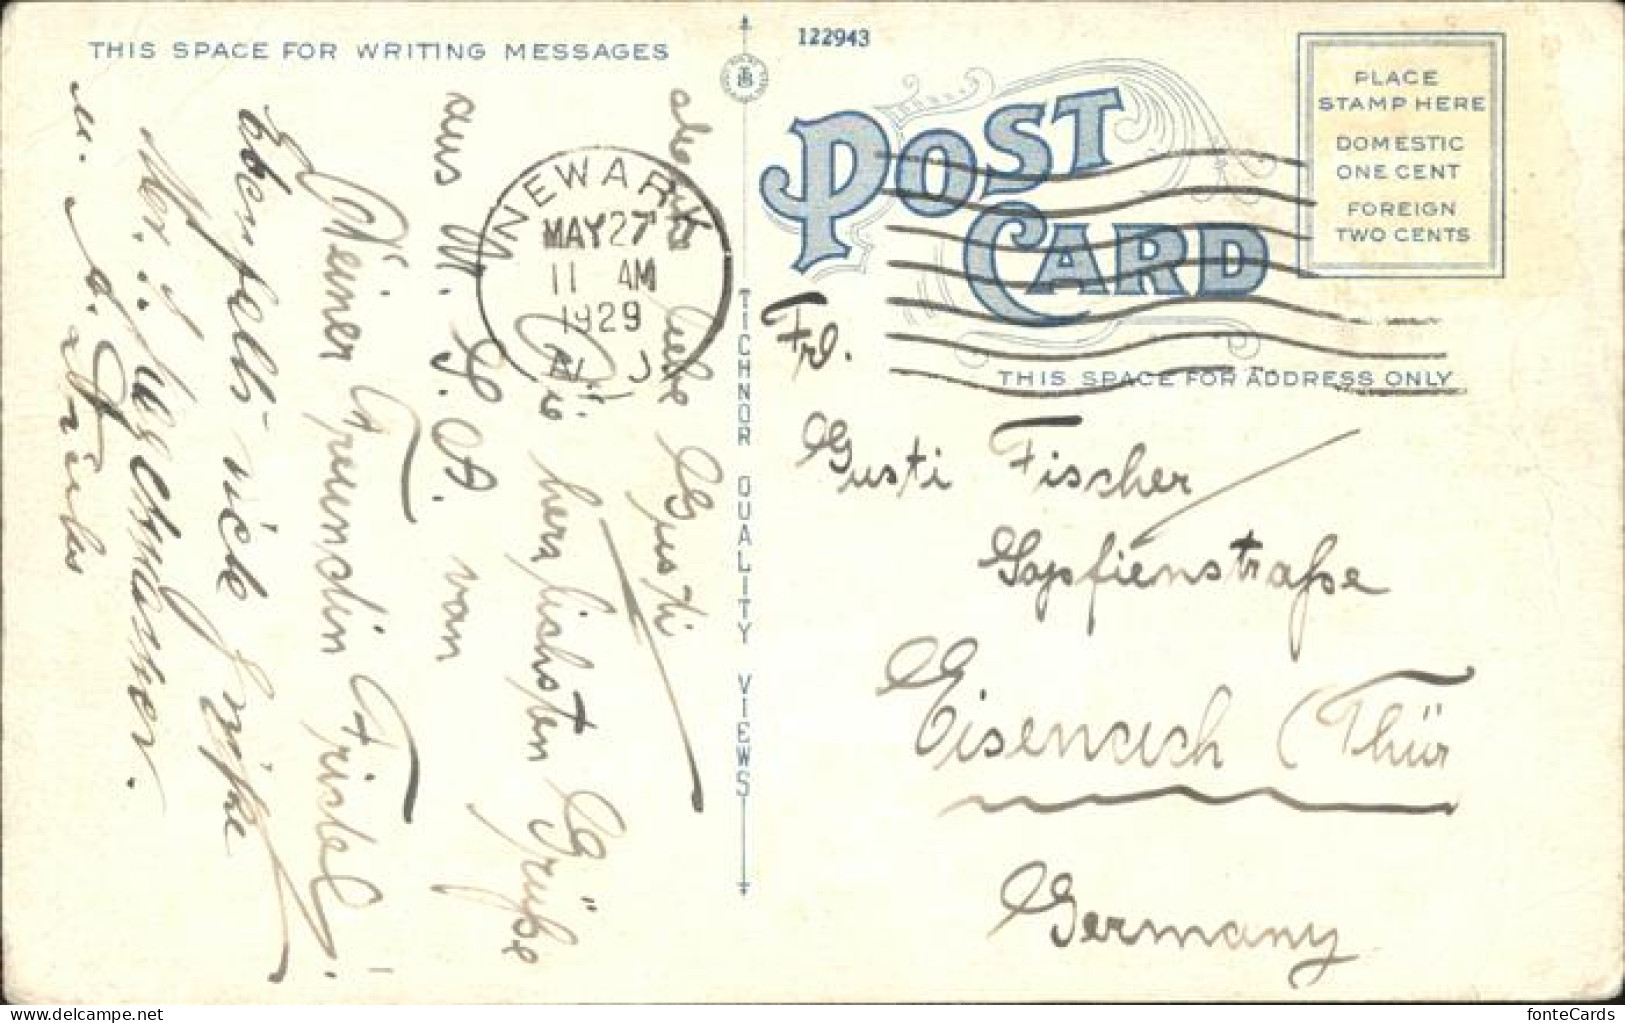 THIS SPACE FOR WRITING MESSAGES
liebe Gusti
Die herzlichsten Grüße
aus N. J. A. von
Deiner Freundin Friedel.
Ebenfalls viele
TICHNOR QUALITY VIEWS
NEWARK
MAY 27
11 AM
1929
N. J.
122943
POST CARD
PLACE
STAMP HERE
DOMESTIC
ONE CENT
FOREIGN
TWO CENTS
THIS SPACE FOR ADDRESS ONLY
Frl.
Gusti Fischer
Sopfienstraße
Eisenach (Thür
Germany
www.delcampe.net
fonteCards